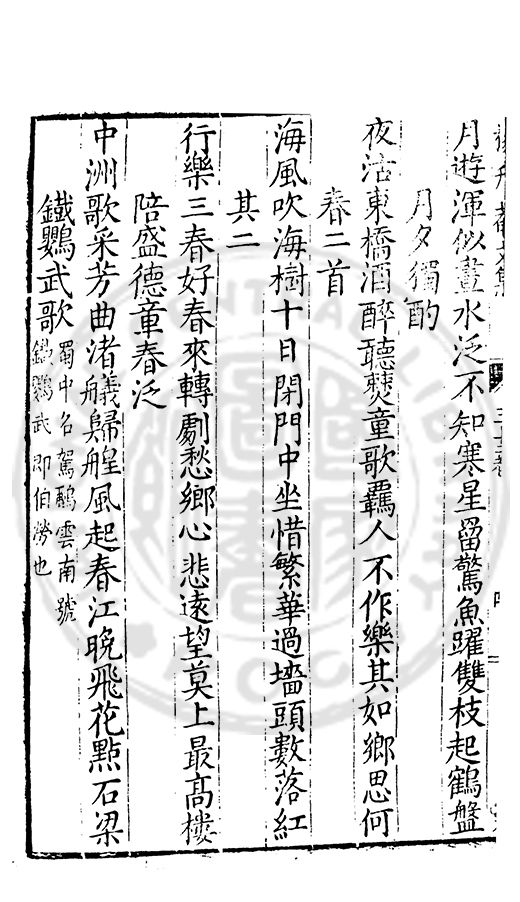 月遊渾似畫水泛不知寒星留驚魚躍雙枝起鶴盤
月夕獨酌
夜沽東橋酒醉聽僰童歌羈人不作樂其如鄉思何
春二首
海風吹海樹十日閉門中坐惜繁華過墻頭數落紅
其二
行樂三春好春來轉劇愁鄉心悲遠望莫上最高樓
陪盛德童春泛
中洲歌采芳曲渚艤歸艎風起春江晚飛花點石梁
鐵鸚武歌
蜀中名駕鸸雲南號
鐵鸚武即伯勞也